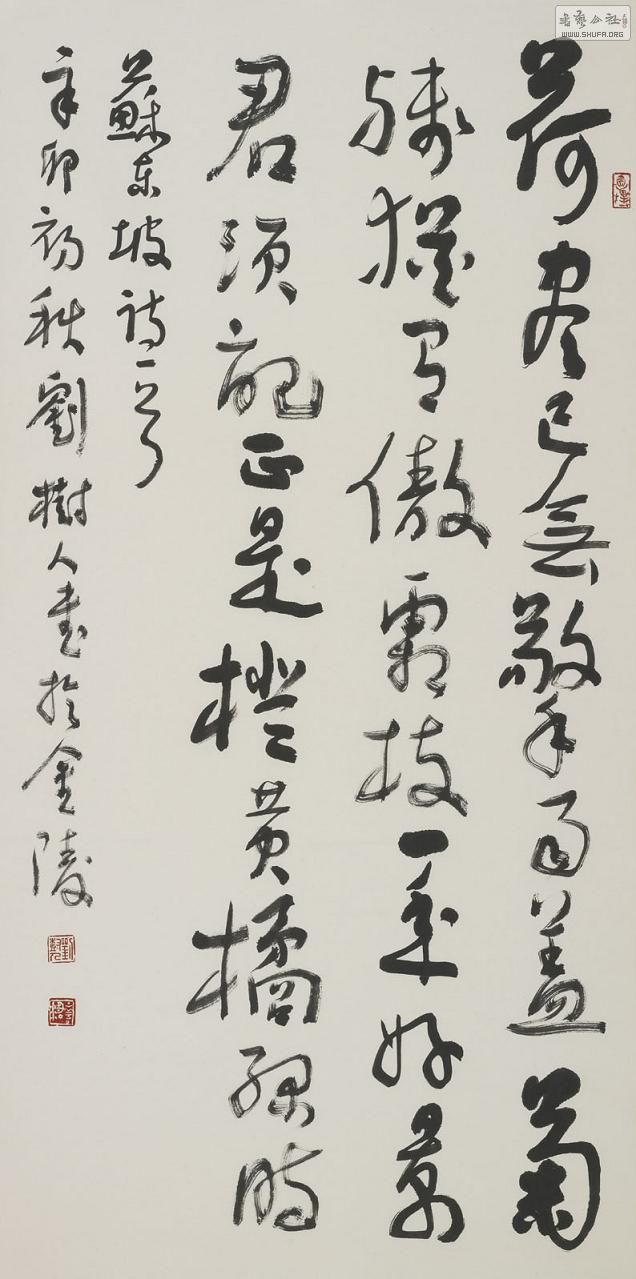 荷盡已無擎雨盖菊
殘猶有傲霜枝一年好景
君須記正是橙黄橘綠時
蘇東坡詩一首
辛卯初秋劉樹人書於金陵
書藝公社
WWW.SHUFA.ORG